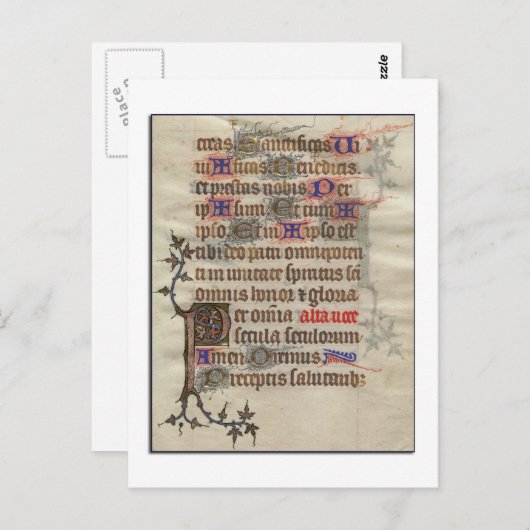 creas Sanctificas Ui
uificas Benedicis.
et prestas nobis Per
ip sum Et cum
ipso Et in ipso est
tibi deo patri omnipoten
ti in unitate spiritus sci
omnis honor & gloria
Per omnia alta uoce
secula seculorum
Amen Oremus
Preceptis salutarib;
Place
zzle